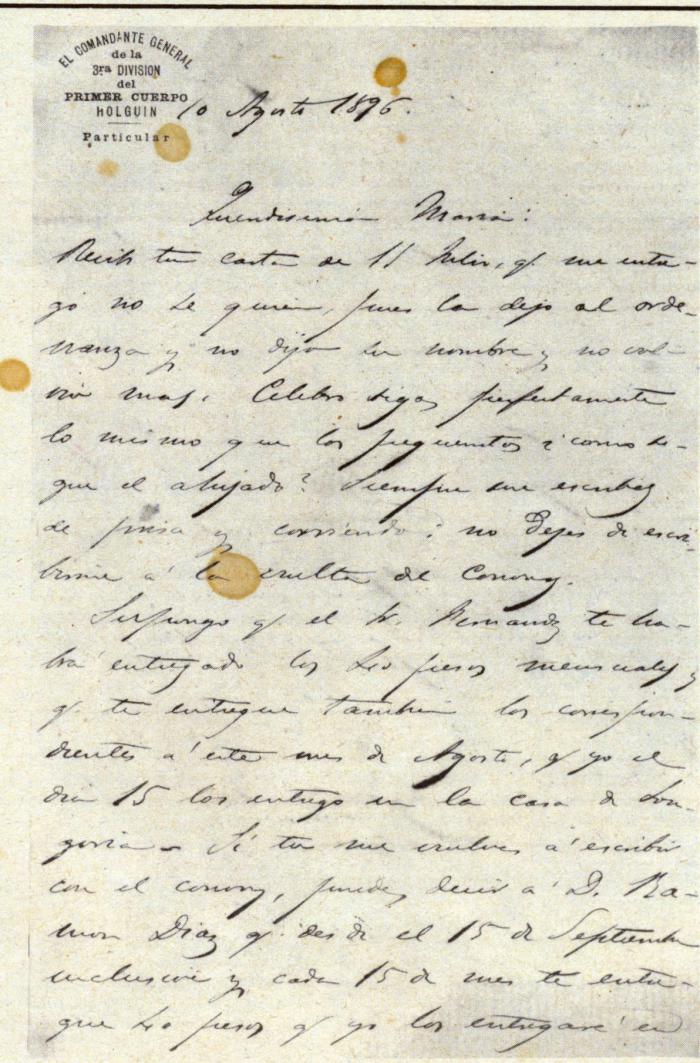 EL COMANDANTE GENERAL
de la
3ra DIVISION
del
PRIMER CUERPO
HOLGUIN
Particular
10 Agosto 1896.
Queridisima Maria:
Recibi tu carta de 11 Julio, q. me entre-
go no se quien, pues la dejo al orde-
nanza y no dijo su nombre y no vol-
vio mas. Celebro sigas perfectamente
lo mismo que los pequeñitos ¿como si-
gue el ahijado? Siempre me escribes
de prisa y corriendo: no dejes de escri-
birme á la vuelta de Convoy.
Supongo q. el Sr. Hernandez te ha-
brá entregado los pesos mensuales y
q. te entregue tambien los correspon-
dientes á este mes de Agosto, q. yo el
dia 15 los entrego en la casa de Lon-
goria - Si tu me vuelves á escribir
con el convoy, puedes decir á D. Ra-
mon Diaz q. desde el 15 de Septiembre
inclusive y cada 15 de mes te entre-
gue pesos q. yo los entregaré en